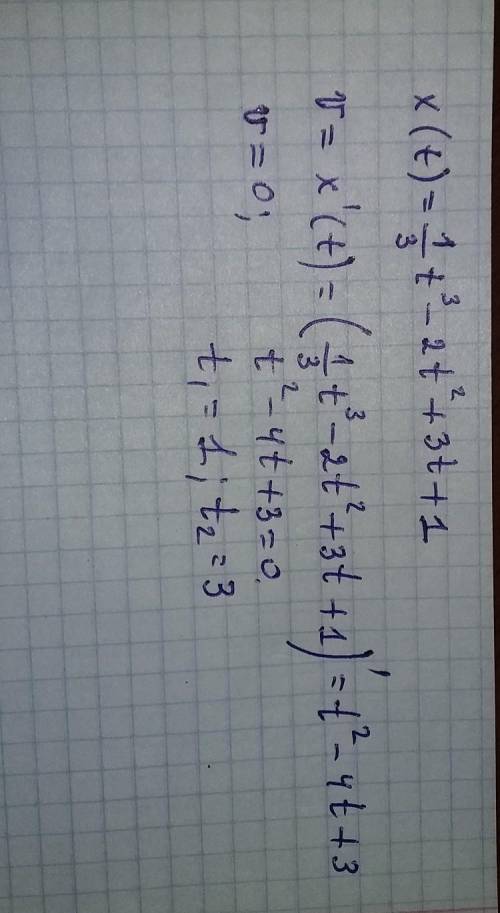 x(t) = 1/3 t³ - 2t² + 3t + 1
v = x'(t) = (1/3 t³ - 2t² + 3t + 1)' = t² - 4t + 3
v = 0; t² - 4t + 3 = 0
t₁ = 1; t₂ = 3